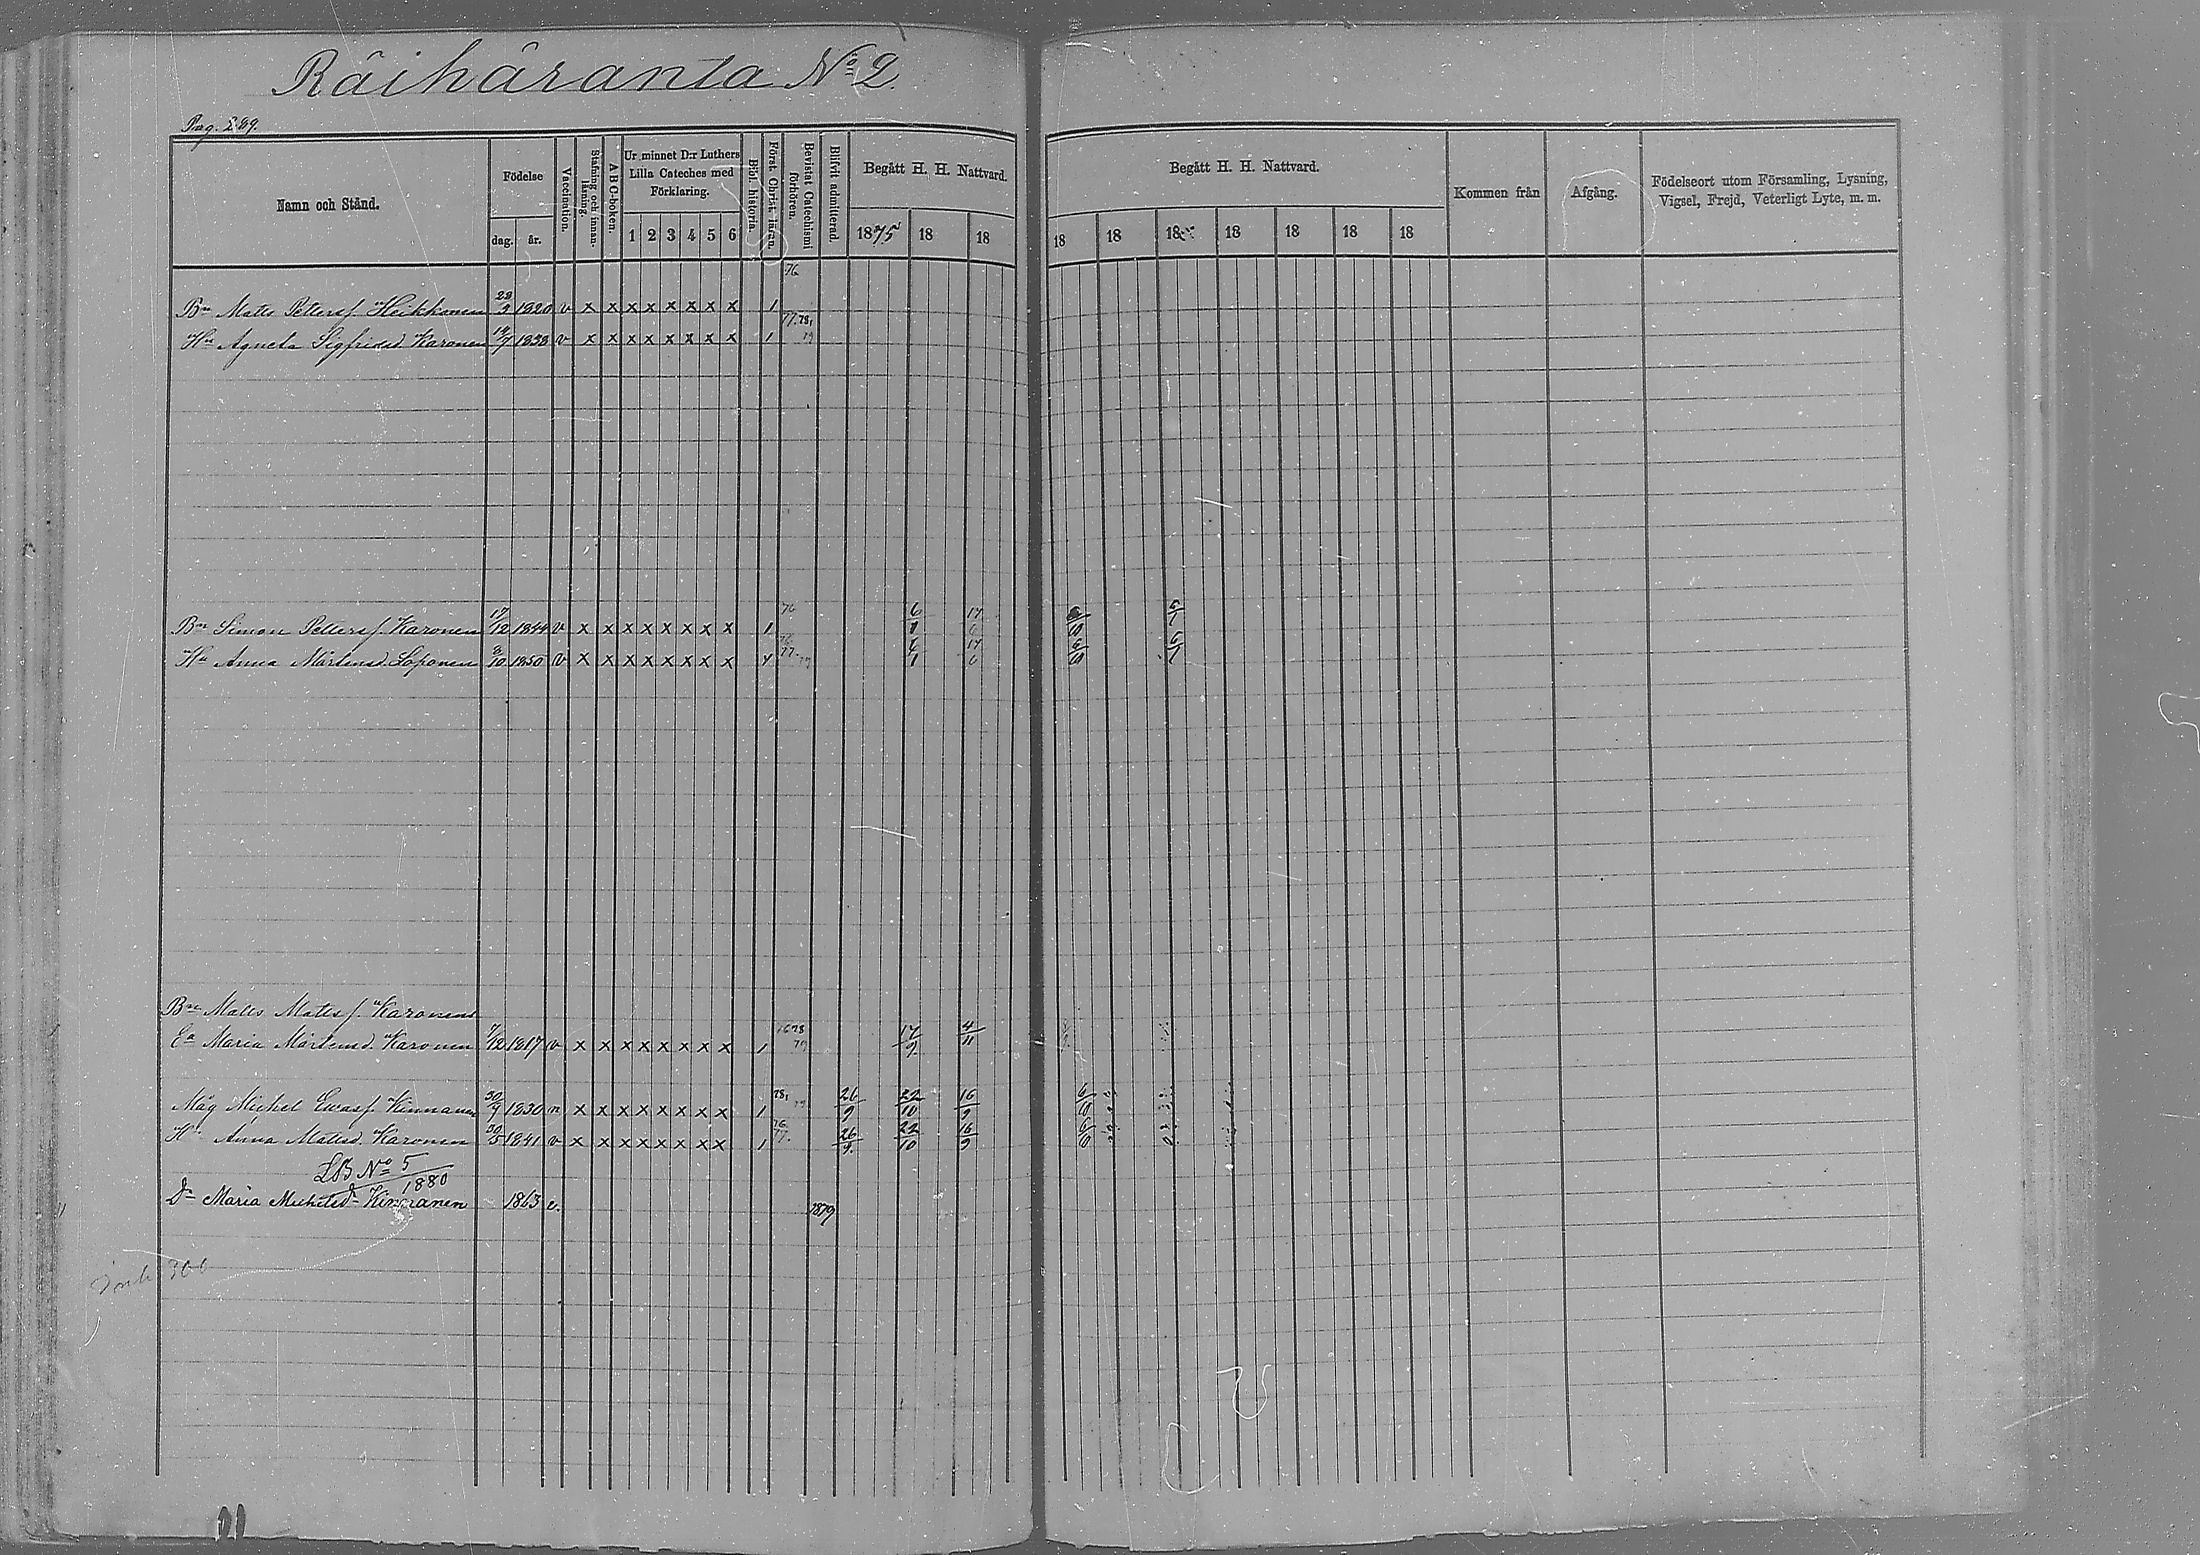 Räihäranta No 2.
Pag. 289.
Namn och Stånd.
Födelse
dag. år.
Vaccination.
Stafning och innanläsning.
A B C-boken.
Ur minnet D:r Luthers Lilla Cateches med Förklaring.
1 2 3 4 5 6
Bibl. historia.
Först. Christ. läran.
Bevistat Catechismi förhören.
Blifvit admitterad.
Begått H. H. Nattvard.
1875 18 18
Begått H. H. Nattvard.
18 18 18 18 18 18 18
Kommen från
Afgång.
Födelseort utom Församling, Lysning, Vigsel, Frejd, Veterligt Lyte, m. m.
76
Bn Matts Petters f. Heikkonen 28/3 1820 v x x x x x x x x 1
77. 78,
Hu Agneta Sigfridsd Karonen 14/7 1838 v x x x x x x x x 1 79
76
Bn Simon Petters f. Karonen 17/12 1844 v x x x x x x x x 1 6/1 17/6 6/10 5/1
76.
77.
Hu Anna Mårtensd. Loponen 8/10 1850 v x x x x x x x x 1 79 6/1 17/6 6/10 5/1
Bn Matts Matts f. Karonens
Ea Maria Mårtensd. Karonen 7/12 1817 v x x x x x x x x 1 76 78 79 17/9 4/11
Måg Michel Ewas f. Kinnanen 30/9 1830 n x x x x x x x x 1 78, 79 26/9 22/10 16/9 6/10
Hu Anna Mattsd. Karonen 30/5 1841 v x x x x x x x x 1 76. 77. 26/9. 22/10 16/9 6/10
LB No 5/1880
Dr Maria Michelsd. Kinnanen 1863 v. 1879